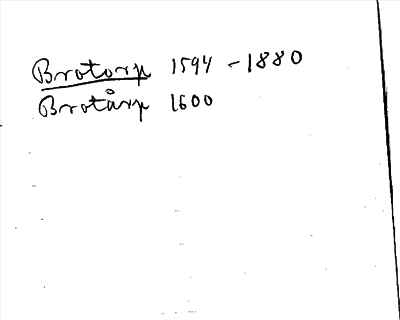 Brotorp 1594 - 1880
Brotårp 1600